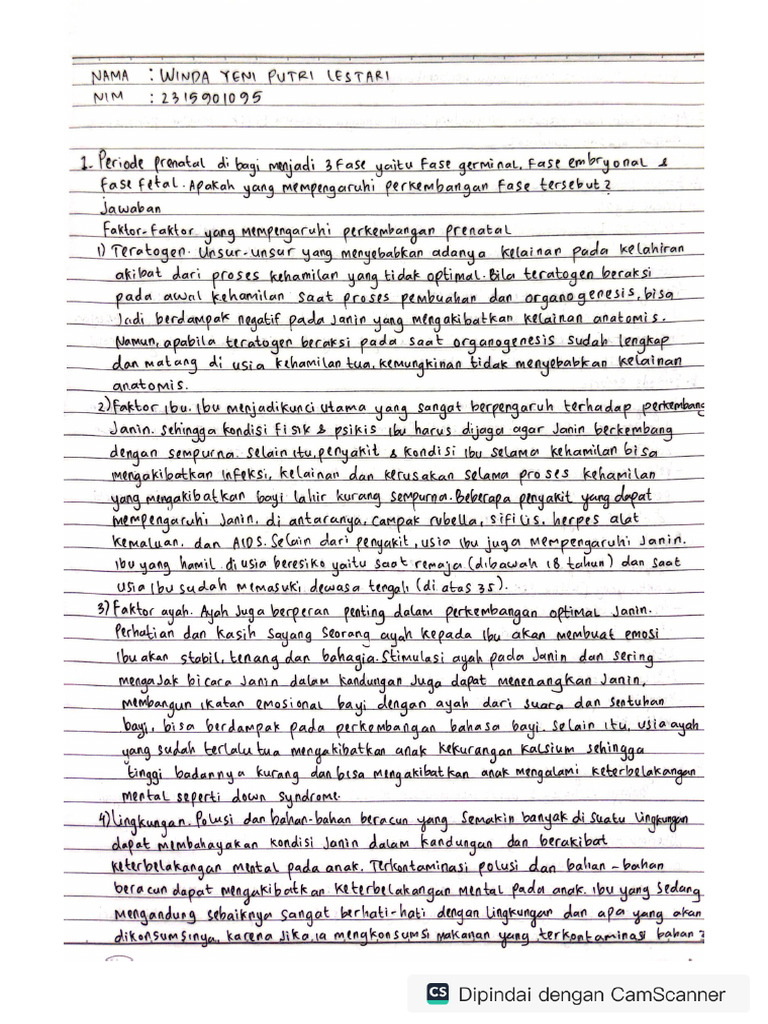 NAMA : WINDA YENI PUTRI LESTARI
NIM : 2315901095
1. Periode prenatal di bagi menjadi 3 fase yaitu fase germinal, fase embryonal &
fase fetal. Apakah yang mempengaruhi perkembangan fase tersebut?
Jawaban
Faktor-faktor yang mempengaruhi perkembangan prenatal
1) Teratogen. Unsur-unsur yang menyebabkan adanya kelainan pada kelahiran
akibat dari proses kehamilan yang tidak optimal. Bila teratogen beraksi
pada awal kehamilan saat proses pembuahan dan organogenesis, bisa
Jadi berdampak negatif pada Janin yang mengakibatkan kelainan anatomis.
Namun, apabila teratogen beraksi pada saat organogenesis sudah lengkap
dan matang di usia kehamilan tua, kemungkinan tidak menyebabkan kelainan
anatomis.
2) Faktor ibu. Ibu menjadi kunci utama yang sangat berpengaruh terhadap perkembang
Janin. sehingga kondisi fisik & psikis ibu harus dijaga agar Janin berkembang
dengan sempurna. selain itu, penyakit & kondisi ibu selama kehamilan bisa
mengakibatkan infeksi, kelainan dan kerusakan selama proses kehamilan
yang mengakibatkan bayi lahir kurang sempurna. Beberapa penyakit yang dapat
mempengaruhi Janin, di antaranya, campak rubella, sifilis, herpes alat
kemaluan, dan AIDS. Selain dari penyakit, usia ibu juga mempengaruhi Janin.
Ibu yang hamil di usia beresiko yaitu saat remaja (dibawah 18 tahun) dan saat
usia ibu sudah memasuki dewasa tengah (di atas 35).
3) Faktor ayah. Ayah juga berperan penting dalam perkembangan optimal Janin.
Perhatian dan kasih sayang seorang ayah kepada ibu akan membuat emosi
ibu akan stabil, tenang dan bahagia. Stimulasi ayah pada Janin dan sering
mengajak bicara Janin dalam kandungan Juga dapat menenangkan Janin,
membangun ikatan emosional bayi dengan ayah dari suara dan sentuhan
bayi, bisa berdampak pada perkembangan bahasa bayi. Selain itu, usia ayah
yang sudah terlalu tua mengakibatkan anak kekurangan kalsium sehingga
tinggi badannya kurang dan bisa mengakibatkan anak mengalami keterbelakangan
mental seperti down syndrome.
4) Lingkungan. Polusi dan bahan-bahan beracun yang semakin banyak di suatu lingkungan
dapat membahayakan kondisi Janin dalam kandungan dan berakibat
keterbelakangan mental pada anak. Terkontaminasi polusi dan bahan-bahan
beracun dapat mengakibatkan keterbelakangan mental pada anak. Ibu yang sedang
mengandung sebaiknya sangat berhati-hati dengan lingkungan dan apa yang akan
dikonsumsinya, karena Jika ia mengkonsumsi makanan yang terkontaminasi bahan2
CS Dipindai dengan CamScanner